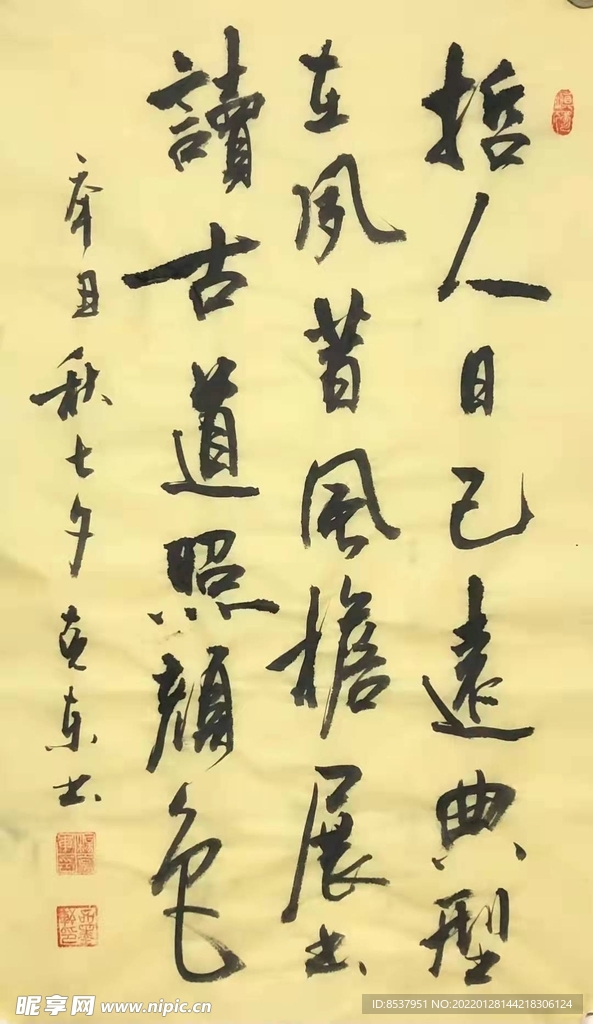 哲人日已遠典型
在夙昔風檐展书
讀古道照顔色
辛丑秋七夕克东书
昵享网 www.nipic.cn
ID:8537951 NO:20220128144218306124